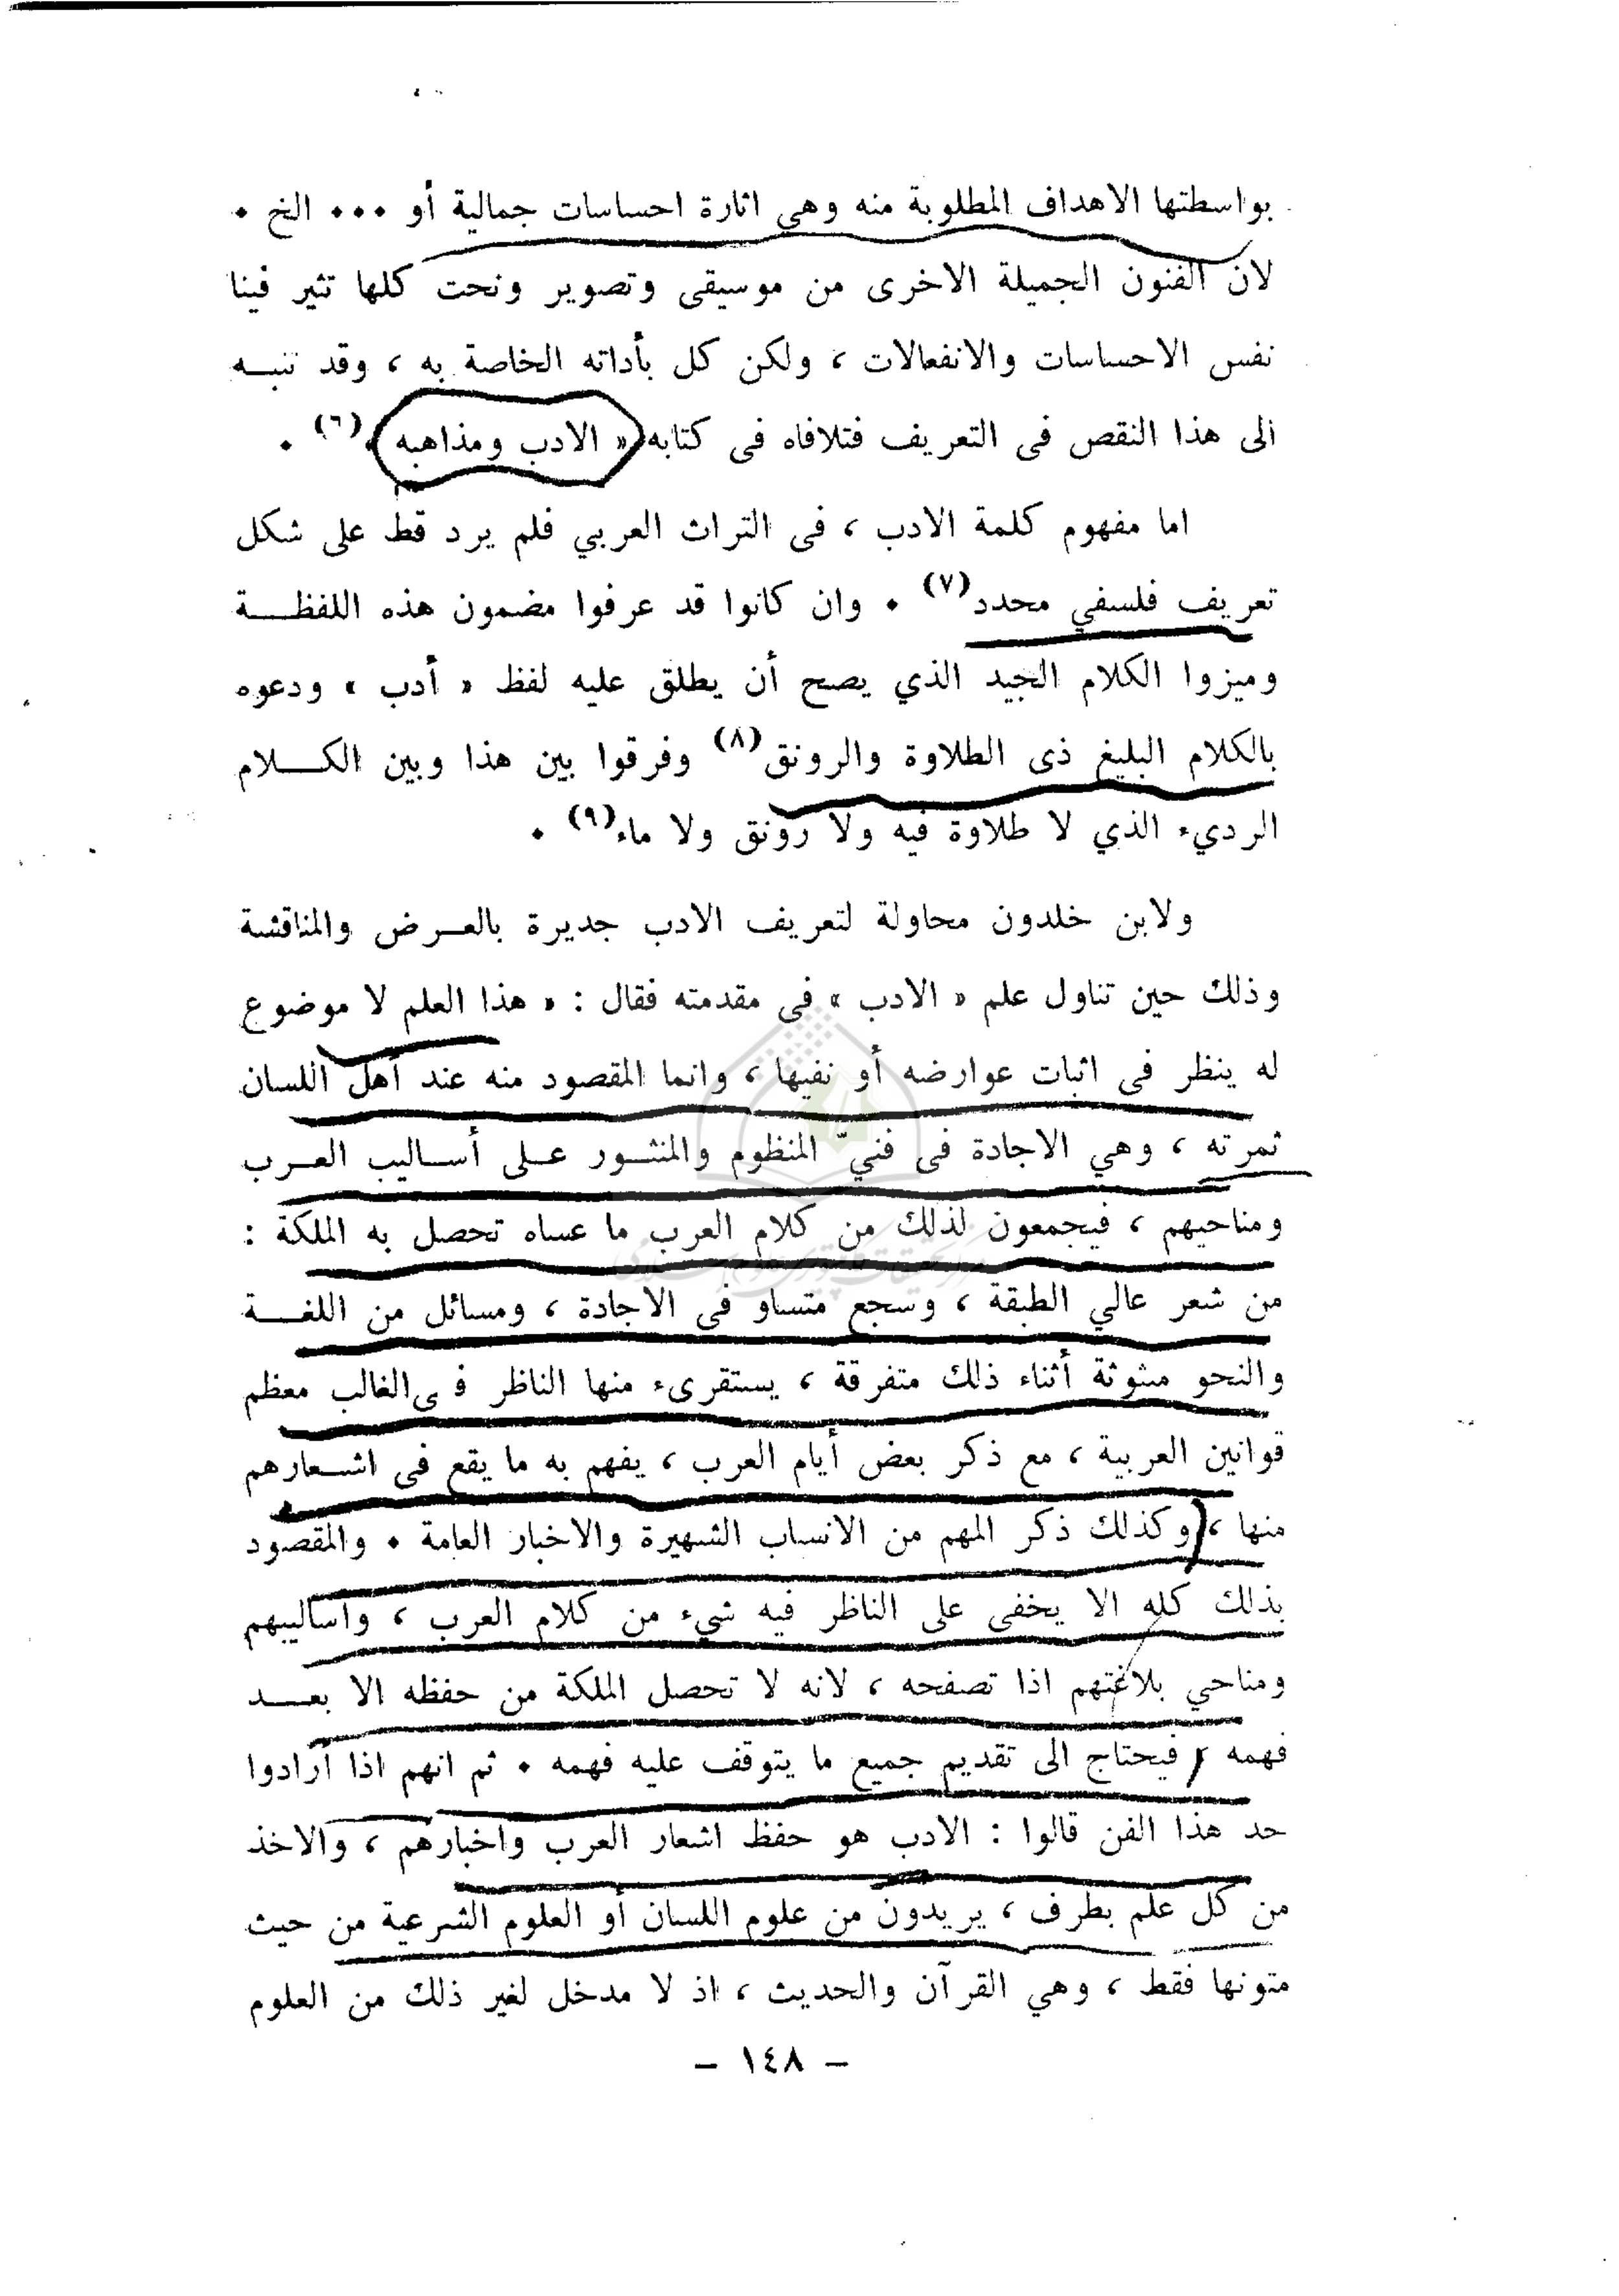 بواسطتها الاهداف المطلوبة منه وهي اثارة احساسات جمالية أو ••• الخ •
لان الفنون الجميلة الاخرى من موسيقى وتصوير ونحت كلها تثير فينا
نفس الاحساسات والانفعالات ، ولكن كل بأداته الخاصة به ، وقد تنبـه
الى هذا النقص فى التعريف فتلافاه فى كتابه « الادب ومذاهبه »(٦) •
اما مفهوم كلمة الادب ، فى التراث العربي فلم يرد قط على شكل
تعريف فلسفي محدد(٧) • وان كانوا قد عرفوا مضمون هذه اللفظـــة
وميزوا الكلام الجيد الذي يصح أن يطلق عليه لفظ « أدب » ودعوه
بالكلام البليغ ذى الطلاوة والرونق(٨) وفرقوا بين هذا وبين الكـــلام
الرديء الذي لا طلاوة فيه ولا رونق ولا ماء(٩) •
ولابن خلدون محاولة لتعريف الادب جديرة بالعـرض والمناقشة
وذلك حين تناول علم « الادب » فى مقدمته فقال : « هذا العلم لا موضوع
له ينظر فى اثبات عوارضه أو نفيها ، وانما المقصود منه عند أهل اللسان
ثمرته ، وهي الاجادة فى فنيّ المنظوم والمنثـور علـى أسـاليب العـرب
ومناحيهم ، فيجمعون لذلك من كلام العرب ما عساه تحصل به الملكة :
من شعر عالي الطبقة ، وسجع متساو فى الاجادة ، ومسائل من اللغـــة
والنحو مبثوثة أثناء ذلك متفرقة ، يستقرىء منها الناظر فى الغالب معظم
قوانين العربية ، مع ذكر بعض أيام العرب ، يفهم به ما يقع فى اشـعارهم
منها ، وكذلك ذكر المهم من الانساب الشهيرة والاخبار العامة • والمقصود
بذلك كله الا يخفى على الناظر فيه شيء من كلام العرب ، واساليبهم
ومناحي بلاغتهم اذا تصفحه ، لانه لا تحصل الملكة من حفظه الا بعـــد
فهمه ، فيحتاج الى تقديم جميع ما يتوقف عليه فهمه • ثم انهم اذا أرادوا
حد هذا الفن قالوا : الادب هو حفظ اشعار العرب واخبارهم ، والاخذ
من كل علم بطرف ، يريدون من علوم اللسان أو العلوم الشرعية من حيث
متونها فقط ، وهي القرآن والحديث ، اذ لا مدخل لغير ذلك من العلوم
– ١٤٨ –